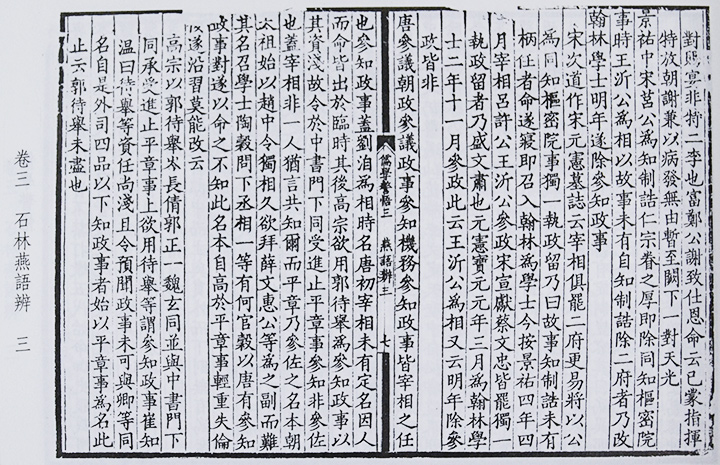 對宴非持二李也富鄭公謝致仕恩命云已蒙指揮
特放朝謝兼以病發無由暫至闕下一對天光
景祐中宋莒公爲知制誥仁宗眷之厚即除同知樞密院
事時王沂公爲相以故事未有自知制誥除二府者乃改
翰林學士明年遂除參知政事
宋次道作宋元憲墓誌云宰相俱罷二府更易將以公
爲同知樞密院事獨一執政留乃曰故事知制誥未有
柄任者命遂寢即召入翰林爲學士今按景祐四年四
月宰相呂許公王沂公參政宋宣獻蔡文忠皆罷獨一
執政留者乃盛文肅也元憲寶元元年三月爲翰林學
士二年十一月參政此云王沂公爲相又云明年除參
政皆非
唐參議朝政參議政事參知機務參知政事皆宰相之任
儒學警悟三 燕語辨三 七
也參知政事蓋劉洎爲相時名唐初宰相未有定名因人
而命皆出於臨時其後高宗欲用郭待舉爲參知政事以
其資淺故令於中書門下同受進止平章事參知非參佐
也蓋宰相非一人猶言共知爾而平章乃參佐之名本朝
太祖始以趙中令獨相久欲拜薛文惠公等爲之副而難
其名召學士陶穀問下丞相一等有何官穀以唐有參知
政事對遂以命之不知此名本自高於平章事輕重失倫
後遂沿習莫能改云
高宗以郭待舉岑長倩郭正一魏玄同並與中書門下
同承受進止平章事上欲用待舉等謂參知政事崔知
溫曰待舉等資任尚淺且令預聞政事未可與卿等同
名自是外司四品以下知政事者始以平章事爲名此
止云郭待舉未盡也
卷三 石林燕語辨 三